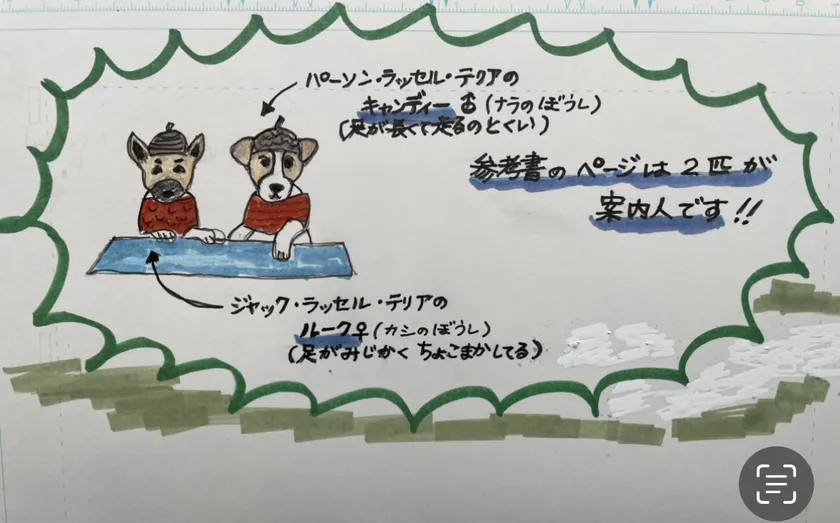 パーソン・ラッセル・テリアの
キャンディー♂(ナラのぼうし)
(足が長くて走るのとくい)
参考書のページは2匹が
案内人です!!
ジャック・ラッセル・テリアの
ルーク♀(カシのぼうし)
(足がみじかくちょこまかしてる)